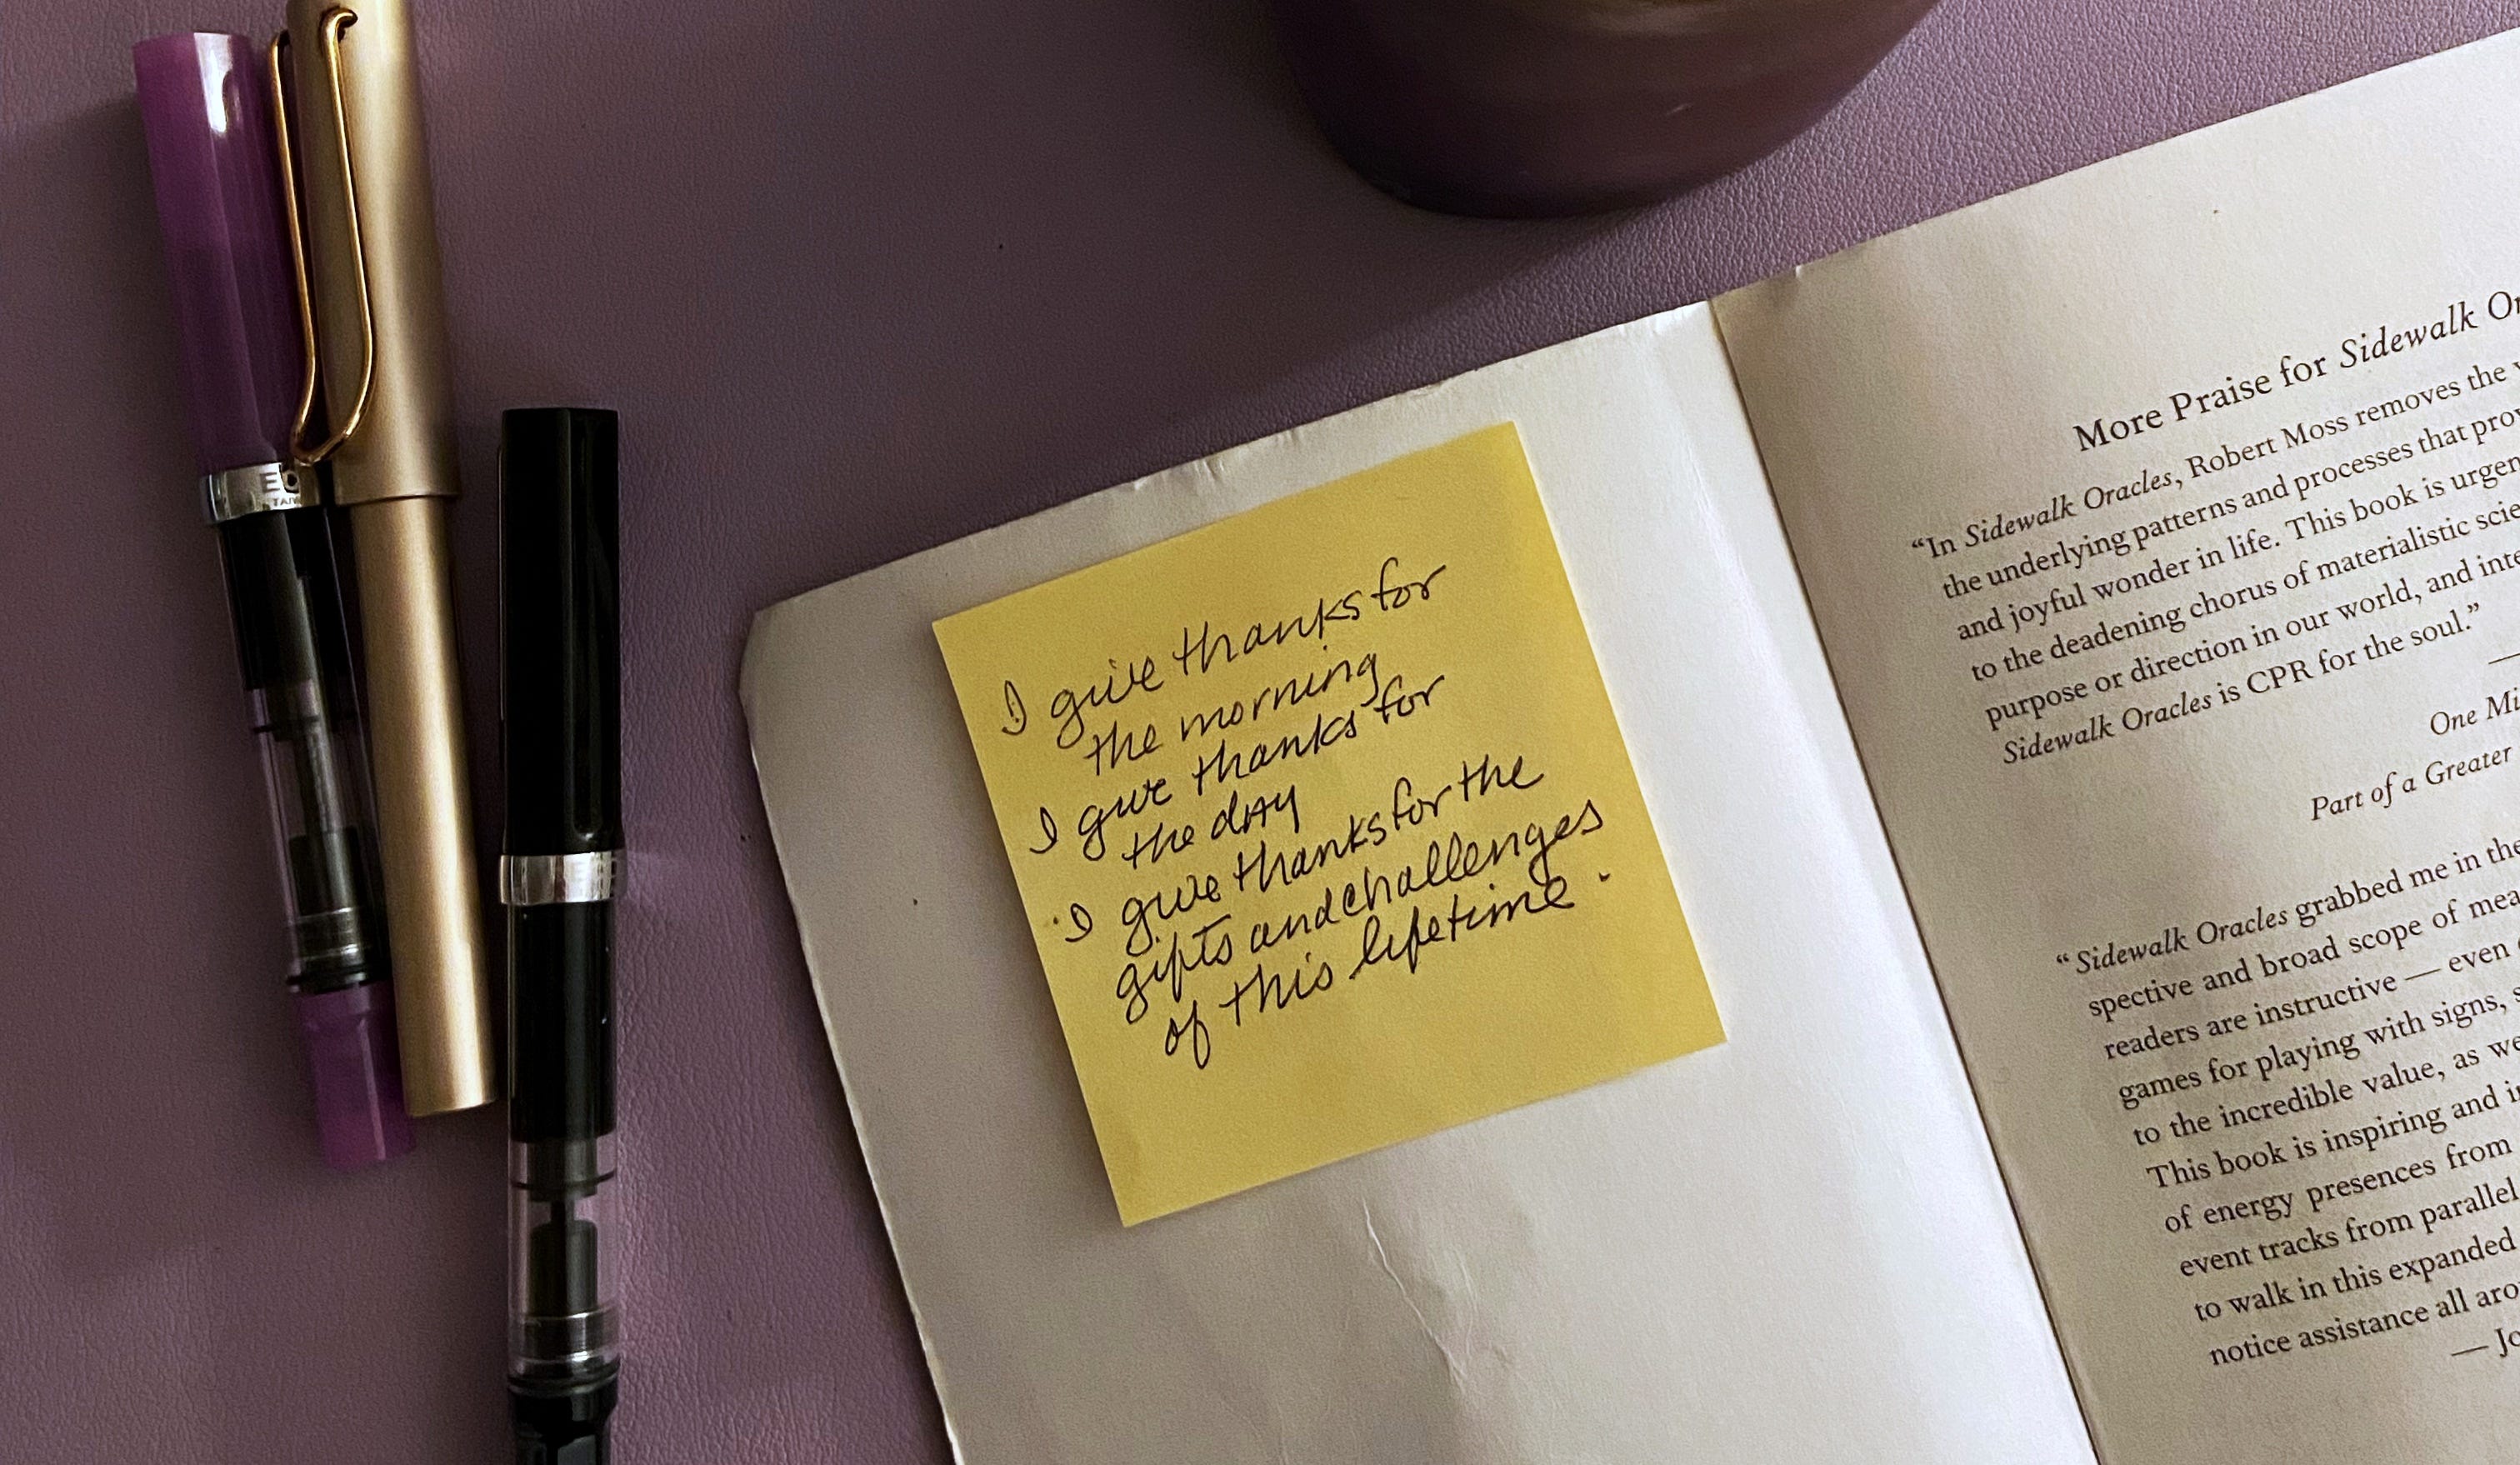 I give thanks for
the morning
I give thanks for
the day
I give thanks for the
gifts and challenges
of this lifetime.
More Praise for Sidewalk
“In Sidewalk Oracles, Robert Moss removes the
the underlying patterns and processes that
and joyful wonder in life. This book is
to the deadening chorus of materialistic
purpose or direction in our world, and
Sidewalk Oracles is CPR for the soul.”
—
One
Part of a Greater
“Sidewalk Oracles grabbed me in the
spective and broad scope of
readers are instructive — even
games for playing with signs,
to the incredible value, as
This book is inspiring and
of energy presences from
event tracks from parallel
to walk in this expanded
notice assistance all
—